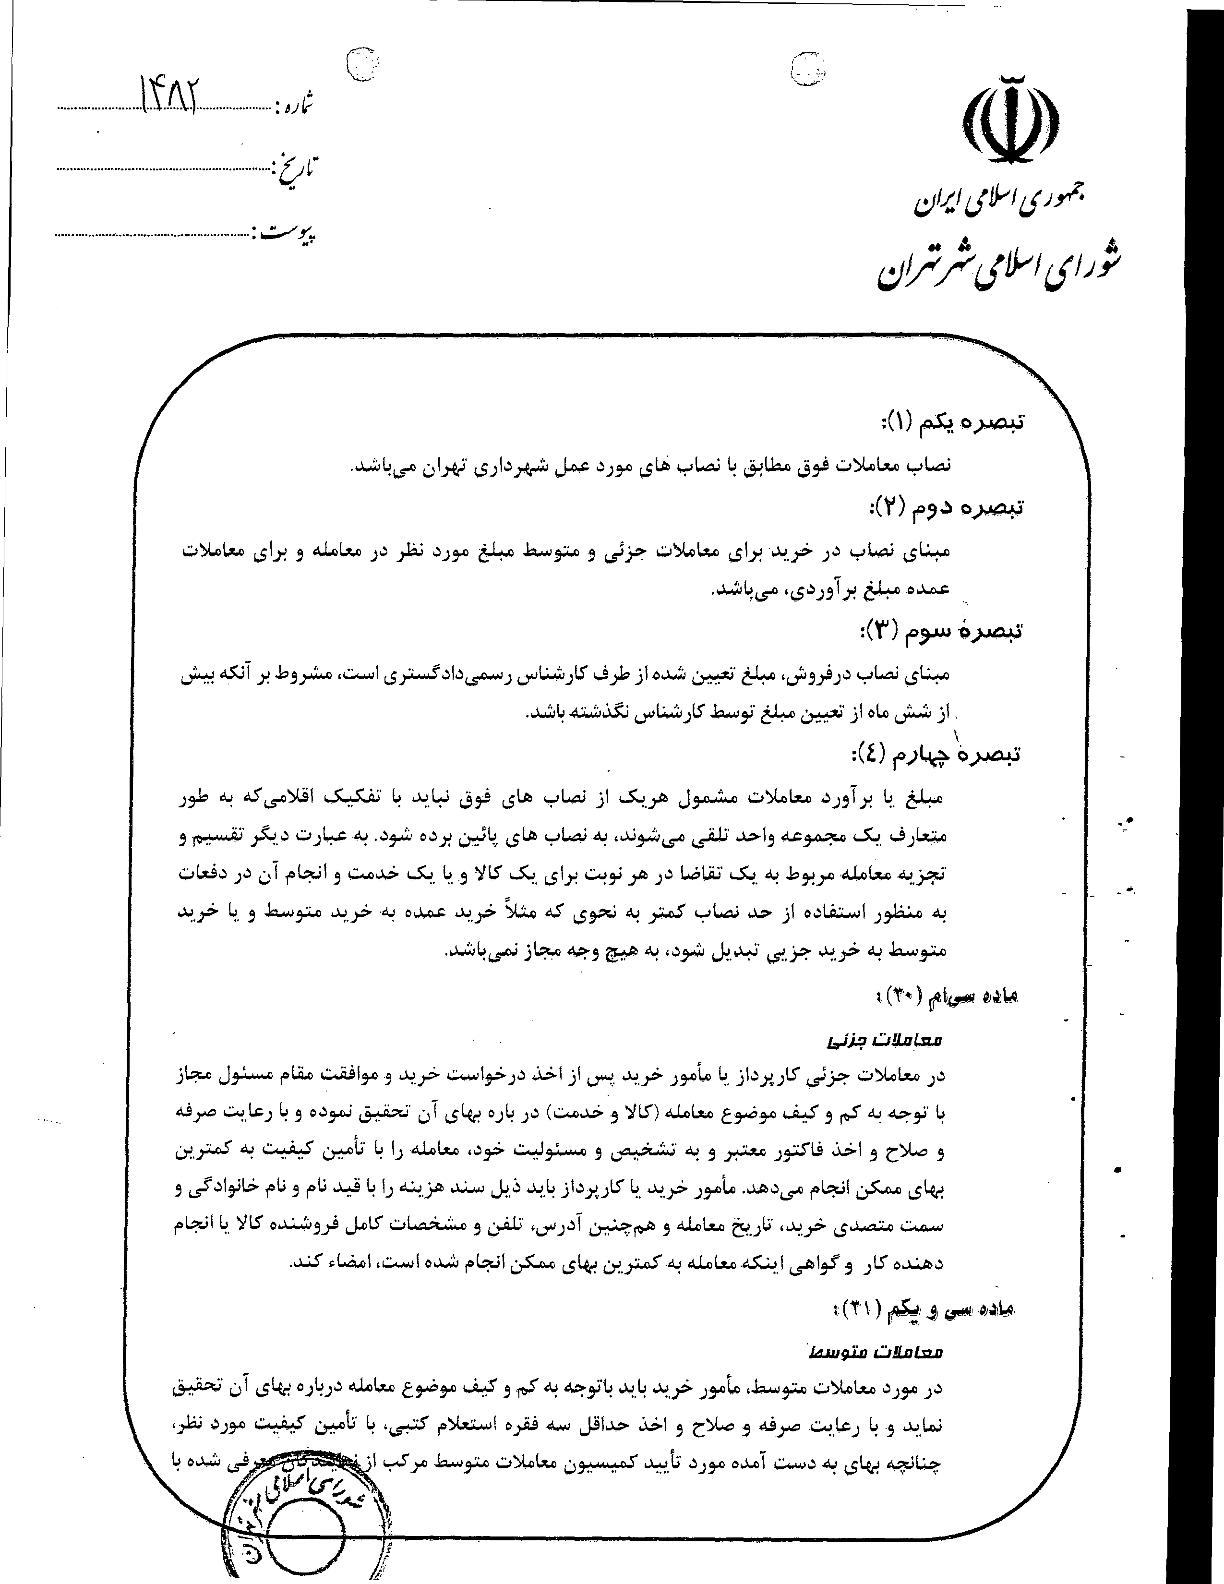 جمهوری اسلامی ایران
شورای اسلامی شهر تهران
شماره: ۱۴۸۲
تاریخ:
پیوست:
تبصره یکم (۱):
نصاب معاملات فوق مطابق با نصاب های مورد عمل شهرداری تهران می‌باشد.
تبصره دوم (۲):
مبنای نصاب در خرید برای معاملات جزئی و متوسط مبلغ مورد نظر در معامله و برای معاملات
عمده مبلغ برآوردی، می‌باشد.
تبصره سوم (۳):
مبنای نصاب درفروش، مبلغ تعیین شده از طرف کارشناس رسمی‌دادگستری است، مشروط بر آنکه بیش
از شش ماه از تعیین مبلغ توسط کارشناس نگذشته باشد.
تبصره چهارم (٤):
مبلغ یا برآورد معاملات مشمول هریک از نصاب های فوق نباید با تفکیک اقلامی‌که به طور
متعارف یک مجموعه واحد تلقی می‌شوند، به نصاب های پائین برده شود. به عبارت دیگر تقسیم و
تجزیه معامله مربوط به یک تقاضا در هر نوبت برای یک کالا و یا یک خدمت و انجام آن در دفعات
به منظور استفاده از حد نصاب کمتر به نحوی که مثلاً خرید عمده به خرید متوسط و یا خرید
متوسط به خرید جزیی تبدیل شود، به هیچ وجه مجاز نمی‌باشد.
ماده سی‌ام (۳۰):
معاملات جزئی
در معاملات جزئی کارپرداز یا مأمور خرید پس از اخذ درخواست خرید و موافقت مقام مسئول مجاز
با توجه به کم و کیف موضوع معامله (کالا و خدمت) در باره بهای آن تحقیق نموده و با رعایت صرفه
و صلاح و اخذ فاکتور معتبر و به تشخیص و مسئولیت خود، معامله را با تأمین کیفیت به کمترین
بهای ممکن انجام می‌دهد. مأمور خرید یا کارپرداز باید ذیل سند هزینه را با قید نام و نام خانوادگی و
سمت متصدی خرید، تاریخ معامله و هم‌چنین آدرس، تلفن و مشخصات کامل فروشنده کالا یا انجام
دهنده کار و گواهی اینکه معامله به کمترین بهای ممکن انجام شده است، امضاء کند.
ماده سی و یکم (۳۱):
معاملات متوسط
در مورد معاملات متوسط، مأمور خرید باید باتوجه به کم و کیف موضوع معامله درباره بهای آن تحقیق
نماید و با رعایت صرفه و صلاح و اخذ حداقل سه فقره استعلام کتبی، با تأمین کیفیت مورد نظر،
چنانچه بهای به دست آمده مورد تأیید کمیسیون معاملات متوسط مرکب از نمایندگان معرفی شده با
شورای اسلامی شهر تهران